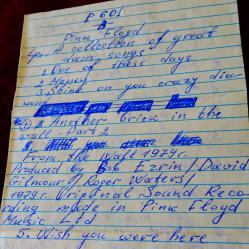 P 601
Pink Floyd
A collection of great
dans songs
1. One of these days
2. Money
3. Shine on you crazy dia
mond
4) Another brick in the
wall - Part 2
From the Wall 1979г.
Produced by Bob Ezrin/David
Gilmour/Roger Waters/
1979г. Original Sound Reco
rding made in Pink Floyd
Music Ltd
5. Wish you were here